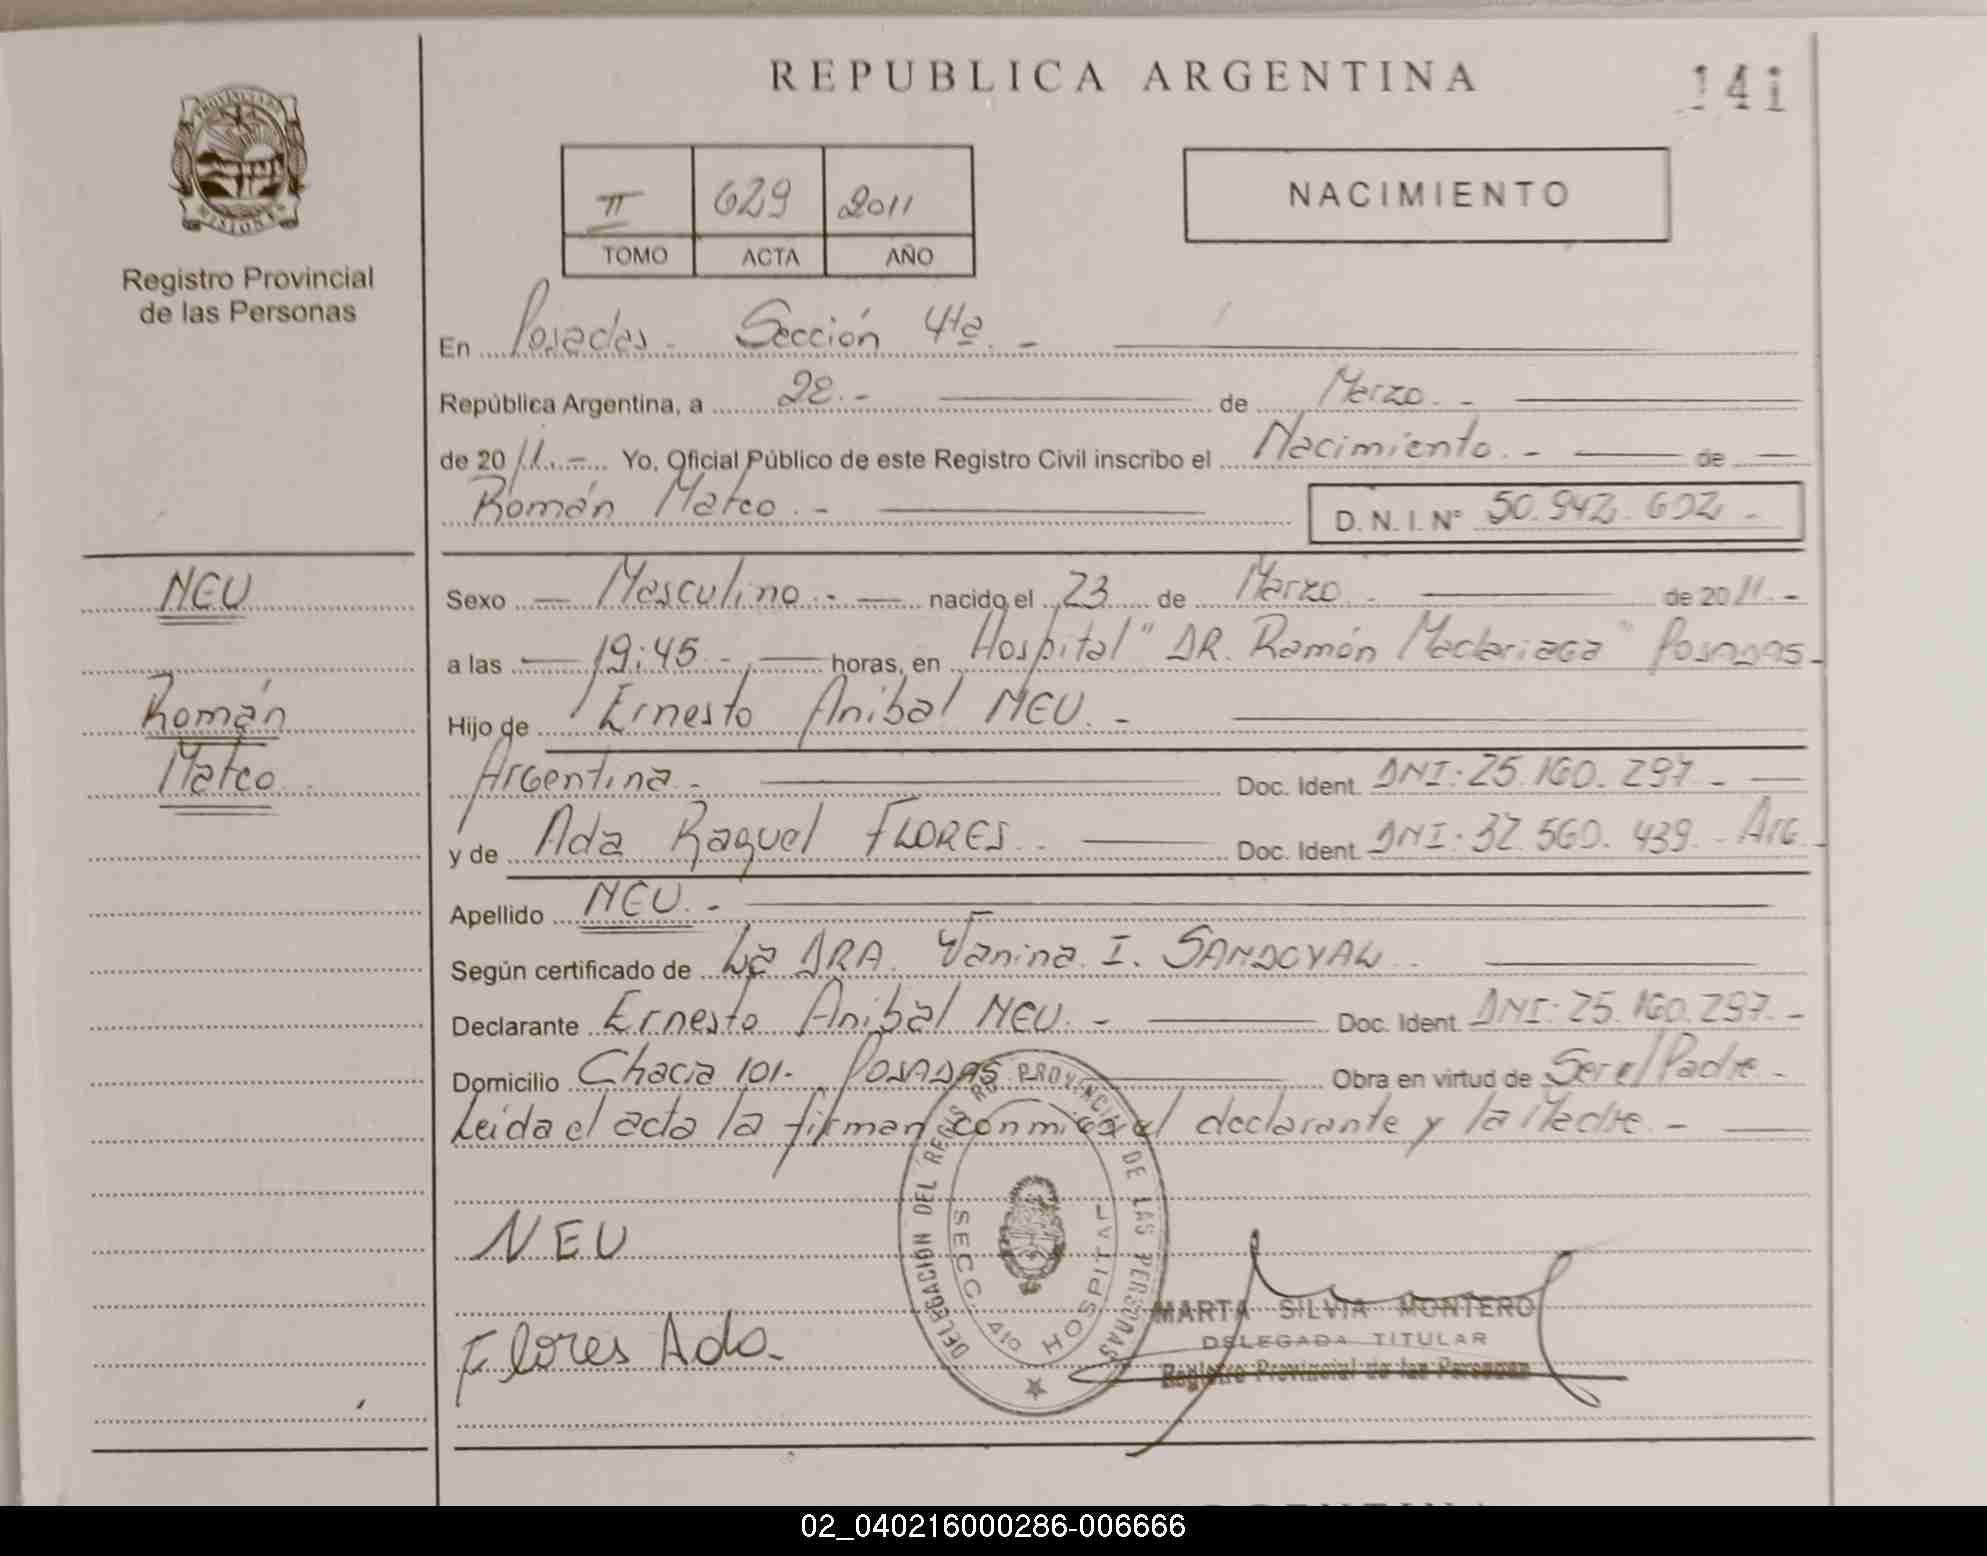 REPUBLICA ARGENTINA
141
PROVINCIA DE MISIONES
Registro Provincial
de las Personas
II 629 2011
TOMO ACTA AÑO
NACIMIENTO
En Posadas - Sección 4ta. -
República Argentina, a 28.- de Marzo. -
de 2011.- Yo, Oficial Público de este Registro Civil inscribo el Nacimiento. - de
Román Mateo. -
D. N. I. Nº 50.942.602 -
NEU
Román
Mateo
Sexo Masculino - nacido el 23 de Marzo. de 2011.-
a las 19:45 - horas, en Hospital "DR. Ramón Madariaga" Posadas-
Hijo de Ernesto Anibal NEU. -
Argentina. - Doc. Ident. DNI: 25.160.297 -
y de Ada Raquel FLORES. Doc. Ident. DNI: 32.560.439. - Arg.
Apellido NEU. -
Según certificado de La DRA. Vanina I. SANDOVAL
Declarante Ernesto Anibal NEU. - Doc. Ident. DNI: 25.160.297. -
Domicilio Chacra 101- Posadas Obra en virtud de Ser el Padre -
Leida el acta la firman conmigo el declarante y la Madre. -
NEU
Flores Ada
DELEGACION DEL REGISTRO PROVINCIAL DE LAS PERSONAS
SECC. 4ta HOSPITAL
MARTA SILVIA MONTERO
DELEGADA TITULAR
Registro Provincial de las Personas
02_040216000286-006666